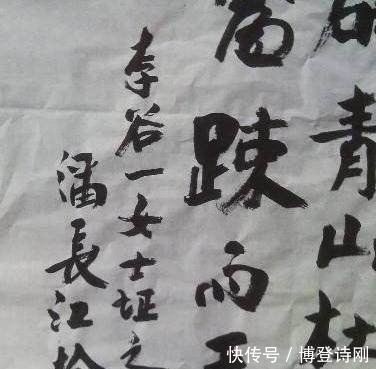 青山
踈而
李谷一女士之
潘長江
快传号/博登诗刚